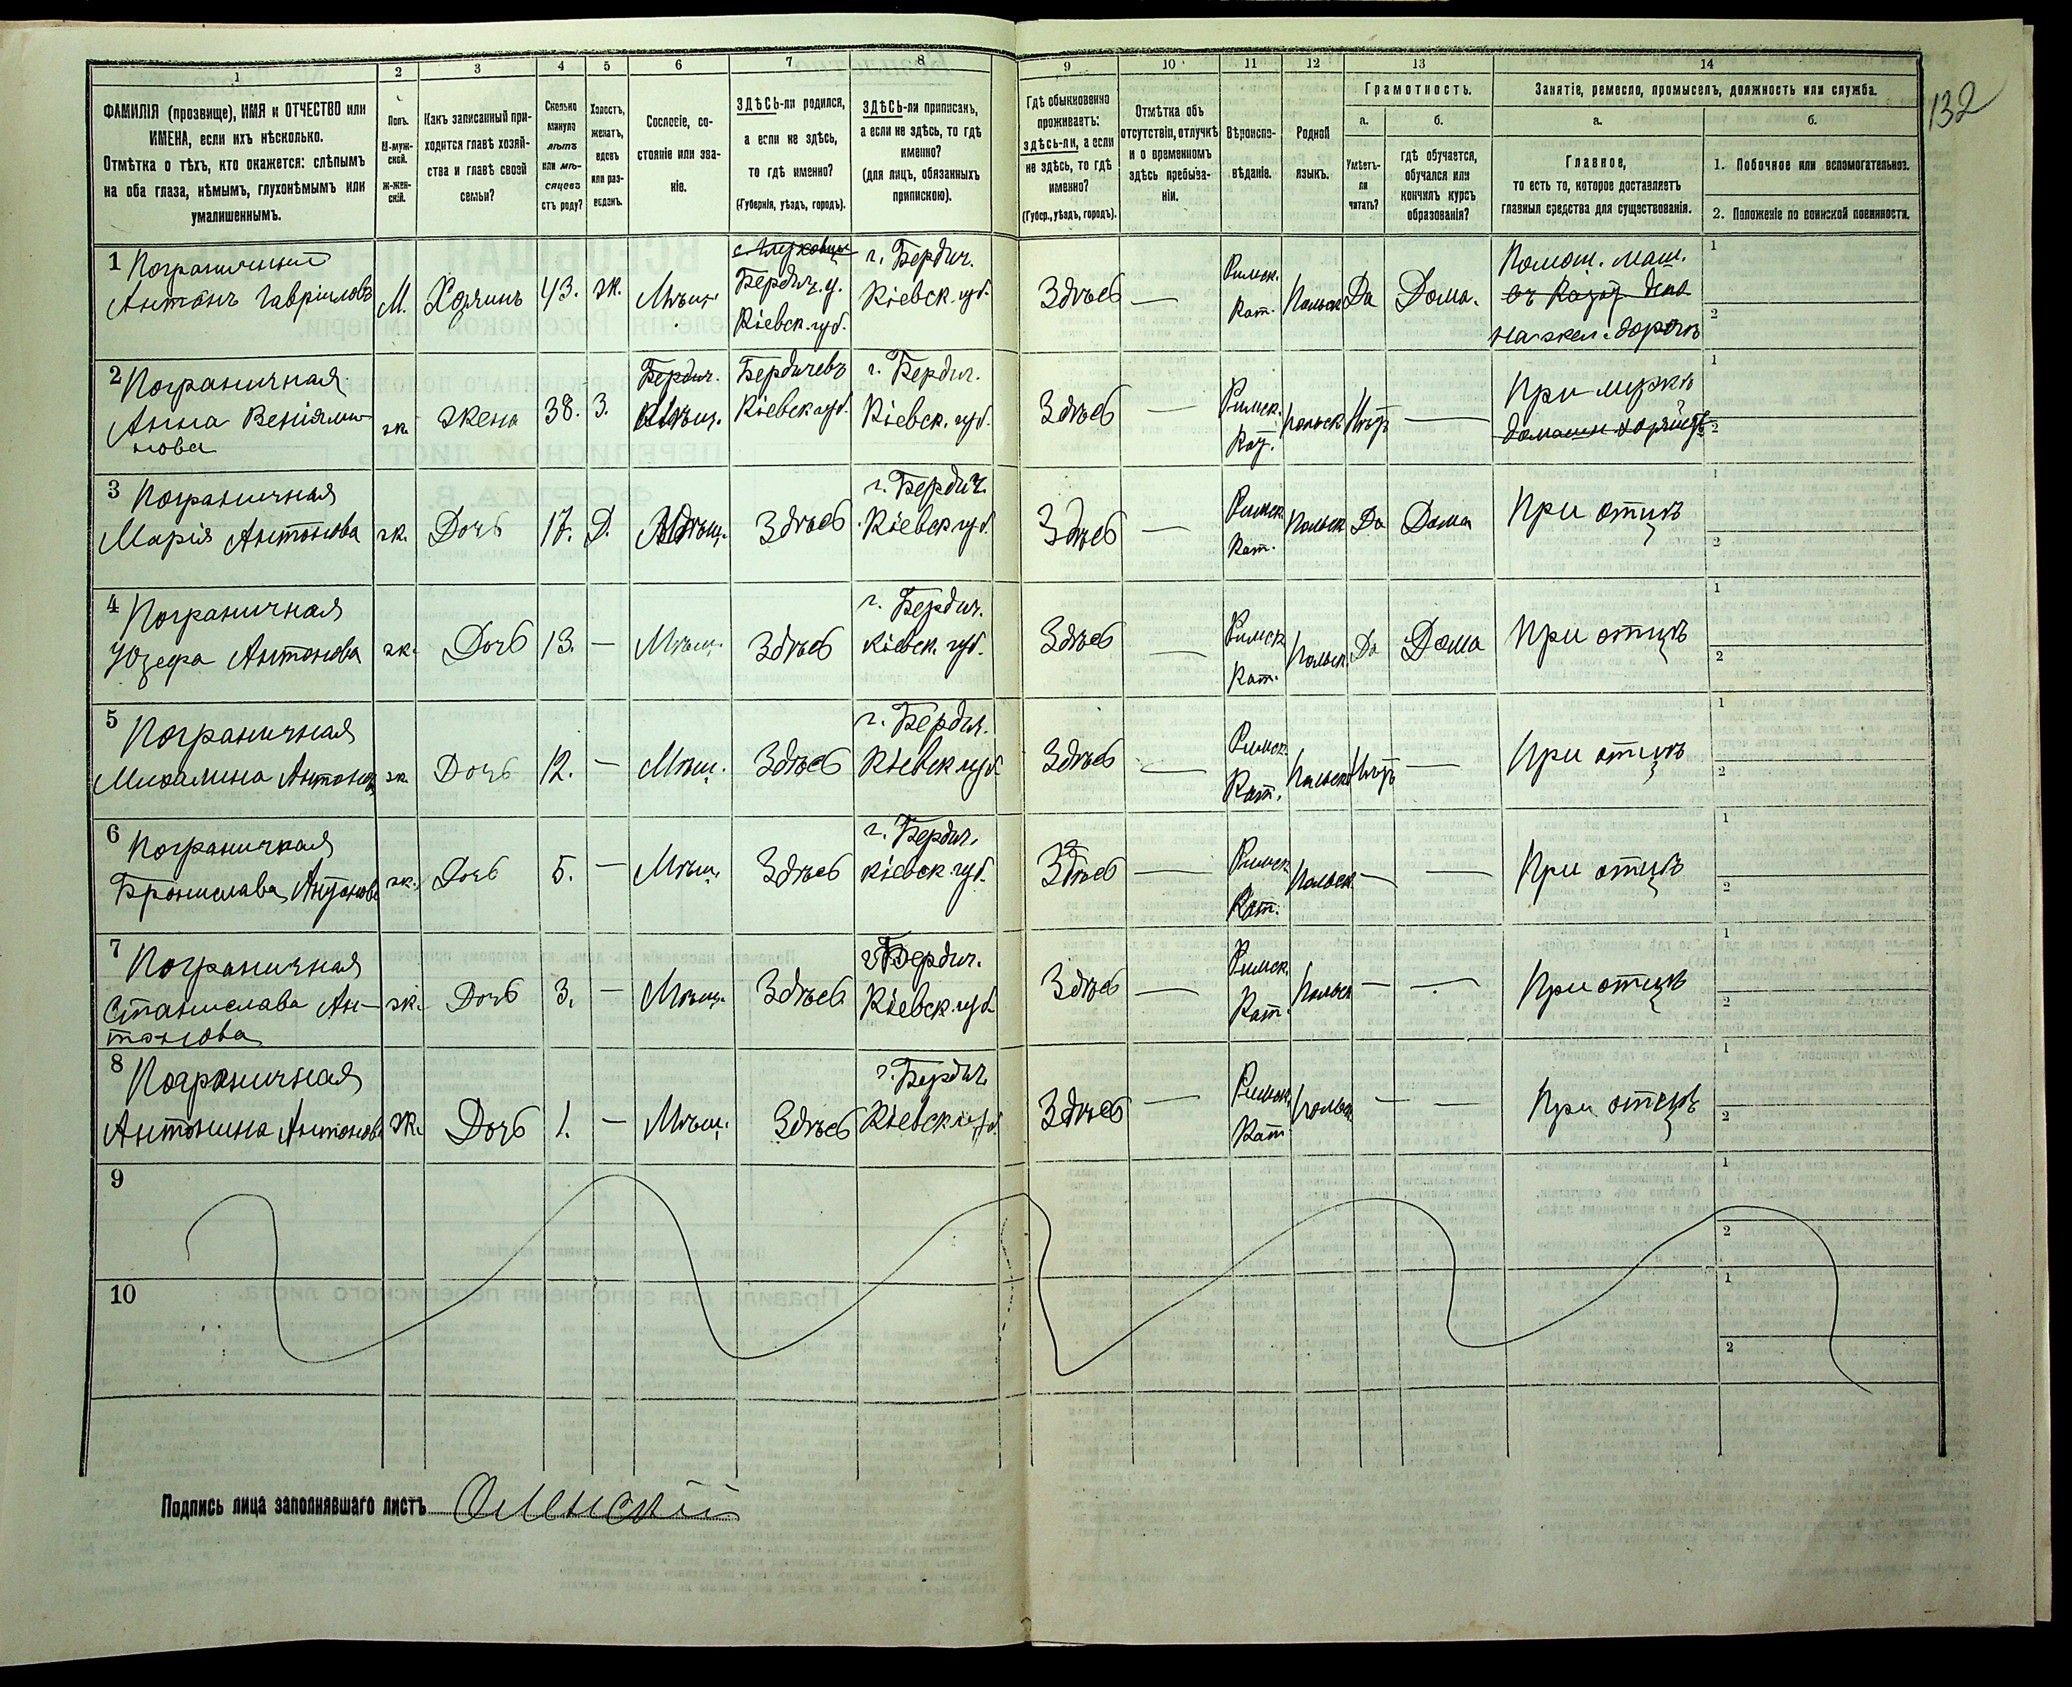 132
1 2 3 4 5 6 7 8 9 10 11 12 13 14
ФАМИЛІЯ (прозвище), ИМЯ и ОТЧЕСТВО или
ИМЕНА, если ихъ нѣсколько.
Отмѣтка о тѣхъ, кто окажется: слѣпымъ
на оба глаза, нѣмымъ, глухонѣмымъ или
умалишеннымъ.
Полъ.
М-муж-
ской.
Ж-жен-
скій.
Какъ записанный при-
ходится главѣ хозяй-
ства и главѣ своей
семьи?
Сколько
минуло
лѣтъ
или мѣ-
сяцевъ
отъ роду?
Холостъ,
женатъ,
вдовъ
или раз-
веденъ.
Сословіе, со-
стояніе или зва-
ніе.
ЗДѢСЬ-ли родился,
а если не здѣсь,
то гдѣ именно?
(Губернія, уѣздъ, городъ).
ЗДѢСЬ-ли приписанъ,
а если не здѣсь, то гдѣ
именно?
(для лицъ, обязанныхъ
припискою).
Гдѣ обыкновенно
проживаетъ:
здѣсь-ли, а если
не здѣсь, то гдѣ
именно?
(Губер., уѣздъ, городъ).
Отмѣтка объ
отсутствіи, отлучкѣ
и о временномъ
здѣсь пребыва-
ніи.
Вѣроиспо-
вѣданіе.
Родной
языкъ.
Грамотность.
а.
Умѣетъ-
ли
читать?
б.
гдѣ обучается,
обучался или
кончилъ курсъ
образованія?
Занятіе, ремесло, промыселъ, должность или служба.
а.
Главное,
то есть то, которое доставляетъ
главныя средства для существованія.
б.
1. Побочное или вспомогательное.
2. Положеніе по воинской повинности.
1 Пограничный
Антонъ Гавріиловъ
М.
Хозяинъ
43.
ж.
Мѣщ.
Бердич. у.
Кіевск. губ.
г. Бердич.
Кіевск. губ.
Здѣсь
—
Римск.
Кат.
Польск
Да
Дома.
Помощ. маш.
на жел. дорогѣ
1
2
2 Пограничная
Анна Веніями-
нова
ж.
жена
38.
З.
Бердич.
Мѣщ.
Бердичевъ
Кіевск губ.
г. Бердич.
Кіевск. губ.
Здѣсь
—
Римск.
Кат.
польск
Нѣтъ
—
При мужѣ
домашн. хозяйств
1
2
3 Пограничная
Марія Антонова
ж.
Дочь
17.
Д.
Мѣщ.
Здѣсь
г. Бердич.
Кіевск губ.
Здѣсь
—
Римск
Кат.
Польск
Да
Дома
При отцѣ
1
2
4 Пограничная
Юзефа Антонова
ж.
Дочь
13.
—
Мѣщ.
Здѣсь
г. Бердич.
Кіевск. губ.
Здѣсь
—
Римск
Кат.
Польск
Да
Дома
При отцѣ
1
2
5 Пограничная
Михалина Антонов
ж.
Дочь
12.
—
Мѣщ.
Здѣсь
г. Бердич.
Кіевск губ
Здѣсь
—
Римск
Кат.
Польск
Нѣтъ
—
При отцѣ
1
2
6 Пограничная
Бронислава Антонова
ж.
Дочь
5.
—
Мѣщ.
Здѣсь
г. Бердич.
Кіевск губ.
Здѣсь
—
Римск
Кат.
Польск
—
—
При отцѣ
1
2
7 Пограничная
Станислава Ан-
тонова
ж.
Дочь
3.
—
Мѣщ.
Здѣсь
г Бердич.
Кіевск. губ
Здѣсь
—
Римск.
Кат.
Польск
—
—
При отцѣ
1
2
8 Пограничная
Антонина Антонова
ж.
Дочь
1.
—
Мѣщ.
Здѣсь
г. Бердич.
Кіевск губ.
Здѣсь
—
Римск.
Кат
Польск
—
—
При отцѣ
1
2
9
1
2
10
1
2
Подпись лица заполнявшаго листъ